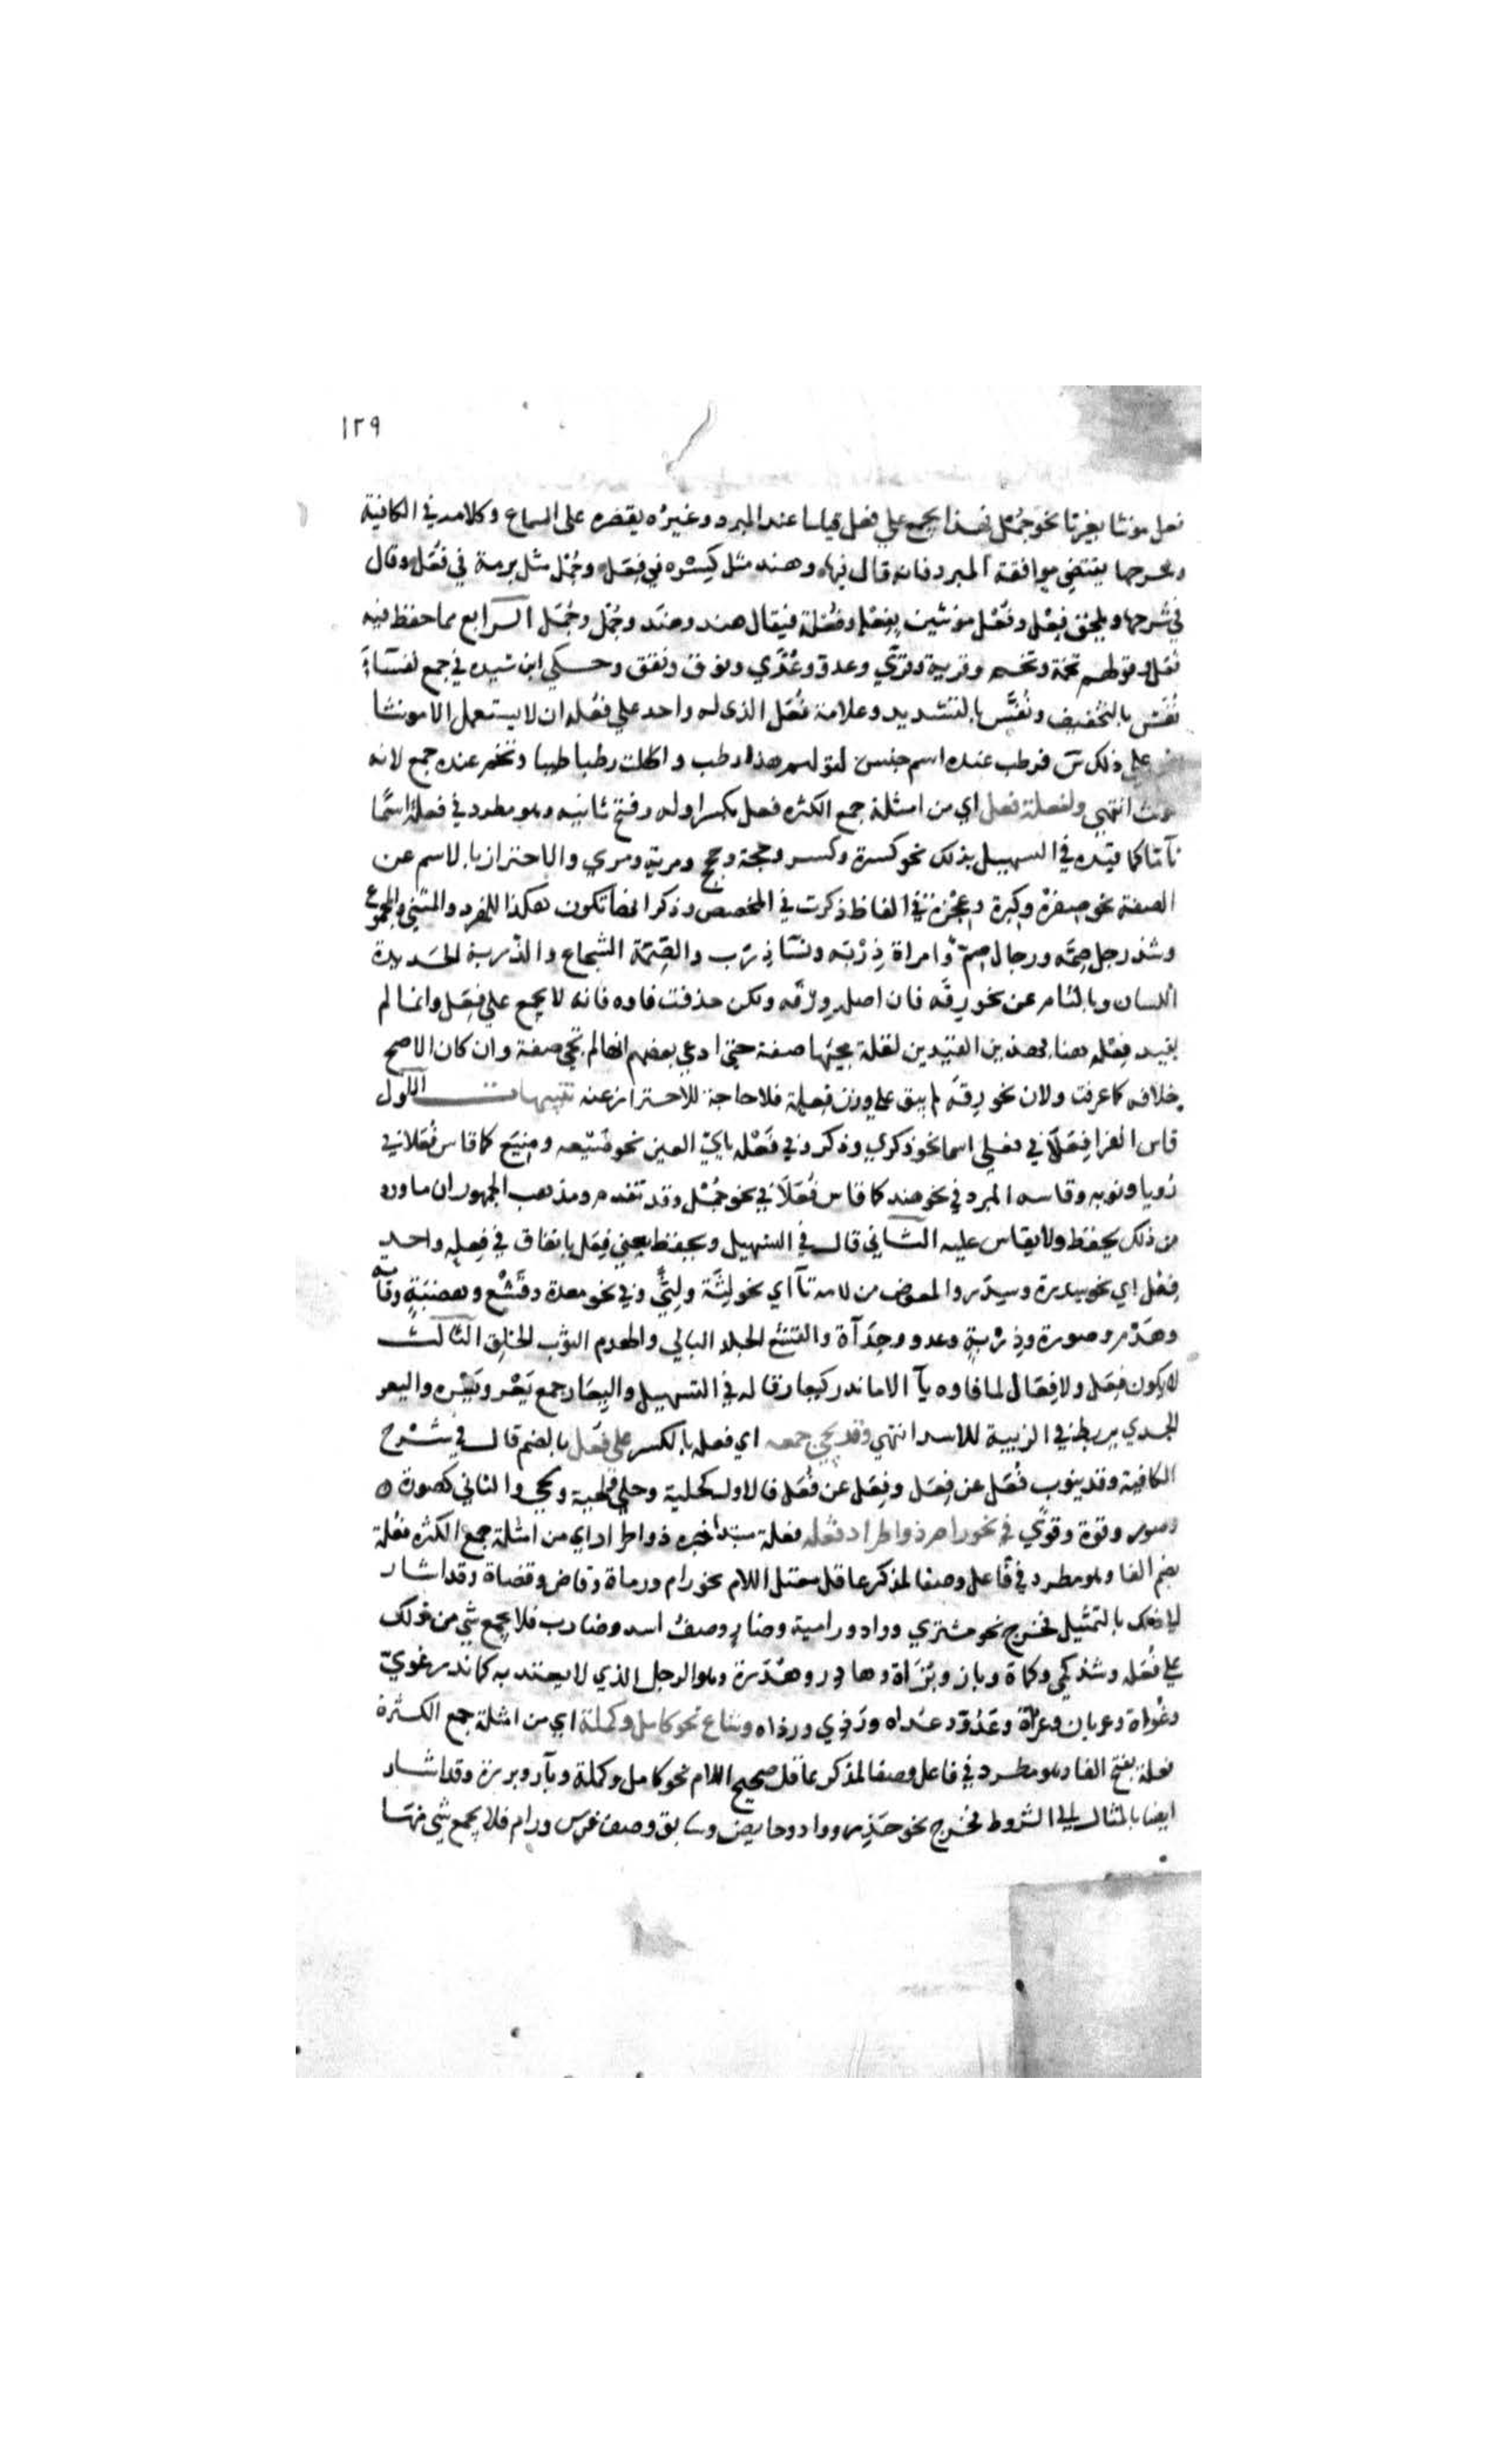 ١٢٩
فعل مونثا بغير تا نحو جُمْل فهذا يجمع علي فعل قياسا عند المبرد وغيره يقصره على السماع وكلامه في الكافية
وشرحها يقتضي موافقة المبرد فانه قال فيها وهند مثل كسره في فِعَل وجُمْل مثل برمة في فُعَل وقال
في شرحها ويلحق فِعْل وفُعْل مونثين بفِعْلة وفُعْلة فيقال هند وهِنَد وجُمْل وجُمَل الرابع مما حفظ فيه
فُعَل قولهم تخمة وتخم وقرية وقرًي وعدو وعُدًي ونوق ونقق وحكي ابن سيده في جمع نفسآء
نُفَس بالتخفيف ونُفَّس بالتشديد وعلامة فُعَل الذى له واحد علي فُعَله ان لا يستعمل الا مونثا
علي ذلك س فرطب عنده اسم جنس لقولهم هذا رطب واكلت رطبا طيبا وتخم عنده جمع لانه
مونث انتهي ولفعلة فعل اي من امثلة جمع الكثره فعل بكسر اوله وفتح ثانيه وهو مطرد في فعلة اسمًا
تآمّا كما قيّده في التسهيل بذلك نحو كسرة وكسر وحجة وحجج ومرية ومري والاحتراز بالاسم عن
الصفة نحو صِغْرة وكِبرة وعِجْزة في الفاظ ذكرت في المخصص وذكر انها تكون هكذا للمفرد والمثني والمجموع
وشذ رجل صِمّه ورجال صِمَم وامراة ذِرْبَه ونسآ ذِرَب والصِّمّة الشجاع والذِّرْبة الحديدة
اللسان وبالتام عن نحو رِقَه فان اصله وِرْقه ولكن حذفت فاوه فانه لا يجمع علي فِعَل وانما لم
يقيد فِعْله هنا بهذين القيدين لقلة مجيئها صفة حتى ادعي بعضهم انها لم تجي صفة وان كان الاصح
خلافه كما عرفت ولان نحو رِقَة لم يبق علي وزن فِعلة فلا حاجة للاحتراز عنه تنبيهات الاول
قاس الفرا فِعَلًا في فعلي اسما نحو ذكري وذكر وفي فَعْله يايّ العين نحو ضَيْعه وضِيَع كما قاس فُعَلا في
رُويا ونوبه وقاسه المبرد في نحو هند كما قاس فُعَلًا في نحو جُمْل وقد تقدم ومذهب الجمهور ان ما ورد
من ذلك يحفظ ولا يقاس عليه الثاني قال في التسهيل ويحفظ يعني فِعَل باتفاق في فِعله واحد
فِعْل اي نحو سِدرة وسِدَر والمعوض من لامه تآ اي نحو لِثَة ولِثًي وفي نحو معدة وقَشْع وهضبَةٍ وقآمة
وهَدْم وصورة وذِرْبةٍ وعدو وحِدَآة والقشع الجلد البالي والهدم الثوب الخَلِق الثالث
لا يكون فِعَل ولا فِعَال لما فاوه يآ الا ما ندر كيعار قاله في التسهيل واليِعَار جمع يَعْر ويَعْره واليعر
الجدي يربط في الزبية للاسد انتهي وقد يجي جمعه اي فعله بالكسر علي فُعَل بالضم قال في شرح
الكافية وقد ينوب فُعَل عن فِعَل وفِعَل عن فُعَل فالاول كحلية وحلي ولحية ولحي والثاني كصورة
وصور وقوة وقوًي في نحو رام ذو اطراد فُعَله فعلة مبتدا خبره ذو اطراد اي من امثلة جمع الكثره فُعَلة
بضم الفا وهو مطرد في فاعل وصفا لمذكر عاقل معتل اللام نحو رام ورماة وقاض وقضاة وقد اشار
لذلك بالتمثيل فخرج نحو مشتري وواد ورامية وضارٍ وصفُ اسد وضارب فلا يجمع شي من ذلك
علي فُعَله وشذ كمي وكماة وباز وبُزَاة وهادر وهُدَرة وهو الرجل الذي لا يعتد به كما ندر غويّ
وغُواة وعريان وعُراة وعَدُوّ وعُداه ورَذِي ورذاه وشاع نحو كامل وكملة اي من امثلة جمع الكثرة
فعلة بفتح الفا وهو مطرد في فاعل وصفا لمذكر عاقل صحيح اللام نحو كامل وكملة وبآر وبررة وقد اشار
ايضا بالمثال الي الشروط فخرج نحو حَذِر وواد وحايض وسابق وصف فرس ورام فلا يجمع شي منها